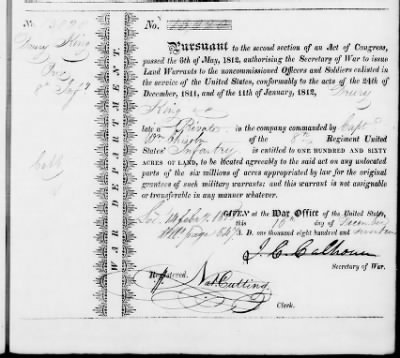 Drury King
Pvt
8th Inf
WAR DEPARTMENT.
No.
Pursuant to the second section of an Act of Congress,
passed the 6th of May, 1812, authorising the Secretary of War to issue
Land Warrants to the noncommissioned Officers and Soldiers enlisted
in the service of the United States, conformably to the acts of the 24th
December, 1811, and of the 11th of January, 1812, Drury
King
late a Private in the company commanded by Capt
Wm of the 8th Regiment United
States' Infantry is entitled to ONE HUNDRED AND SIXTY
ACRES OF LAND, to be located agreeably to the said act on any unlocated
parts of the six millions of acres appropriated by law for the original
grantees of such military warrants; and this warrant is not assignable
or transferable in any manner whatever.
GIVEN at the War Office of the United States,
this day of December
A. D. one thousand eight hundred and seventeen
page
J. C. Calhoun
Secretary of War.
Registered.
Nat. Cutting
Clerk.